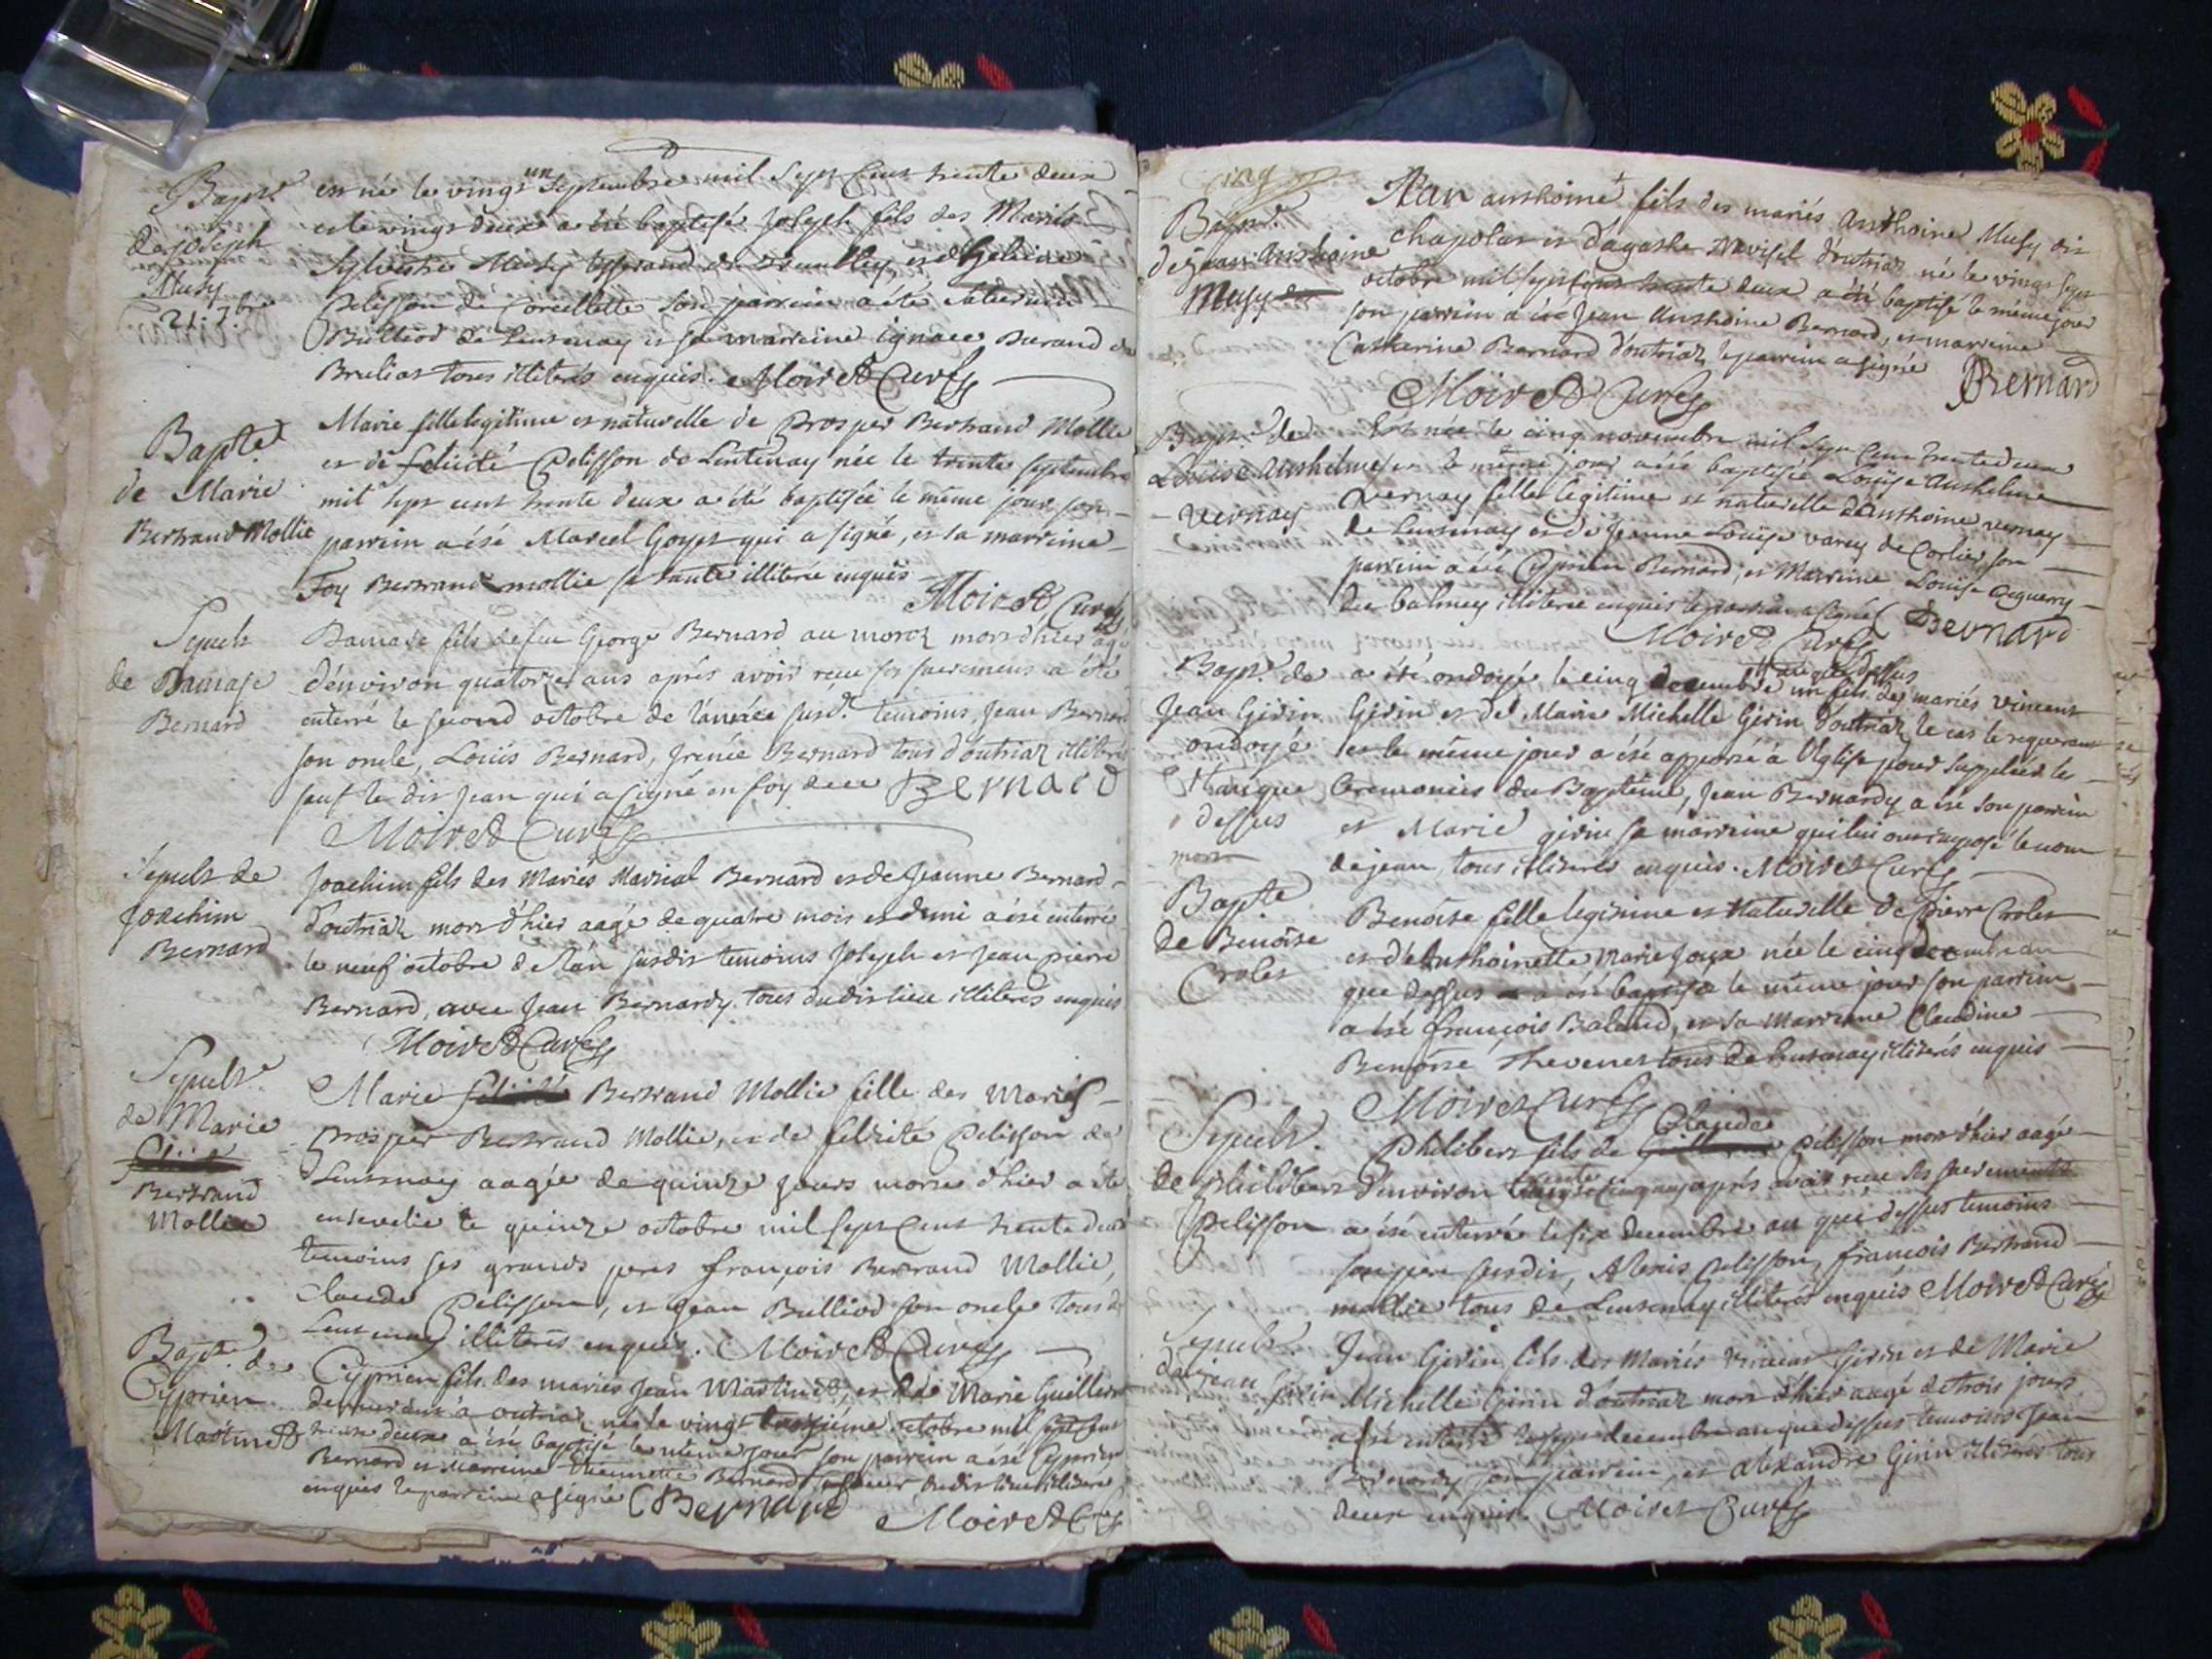 Bapt.e
de joseph
Musy
21. 7.bre
est né le vingt un septembre mil sept cent trente deux
et le vingt deux a été baptisé joseph fils des Mariés
Sylvestre Musy
Pelisson de Corcellette son parrein a été
Bulliod de Lentenay et sa marreine ignace Durand de
Brulias tous illiterés enquis. Moiret Curé
Bapte
de Marie
Bertrand Mollie
Marie fille legitime et naturelle de Prosper Bertrand Mollie
et de felicité Pelisson de Lentenay née le trente septembre
mil sept cent trente deux a été baptisée le même jour son
parrein a été Marcel Goyet qui a signé, et sa marreine
Foy Bertrand mollie sa tante illiterée enquis
Moiret Curé
Sepult
de Damase
Bernard
Damase fils de feu George Bernard au morez mort d'hier agé
d'environ quatorze ans après avoir reçu ses sacremens a été
enterré le second octobre de l'année susd.e temoins, Jean Bernard
son oncle, Louis Bernard, Irenée Bernard tous d'outriaz illiterés
sauf le dit Jean qui a signé en foy de ce Bernard
Moiret Curé
Sepult de
Joachim
Bernard
Joachim fils des Mariés Martial Bernard et de Jeanne Bernard
d'outriaz mort d'hier aagé de quatre mois et demi a été enterré
le neuf octobre de l'an susdit temoins Joseph et Jean pierre
Bernard, avec Jean Bernardy tous dudit lieu illiterés enquis
Moiret Curé
Sepult.
de Marie
Bertrand
Mollie
Marie Bertrand Mollie fille des Mariés
prosper Bertrand Mollie, et de felicité Pelisson de
Lentenay aagée de quinze jours morte d'hier a été
ensevelie le quinze octobre mil sept cent trente deux
temoins ses grands peres françois Bertrand Mollie,
Claude Pelisson, et Jean Bulliod son oncle tous de
Lentenay illiterés enquis. Moiret Curé
Bapt.e de
Cyprien
Martinet
Cyprien fils des mariés Jean Martinet, et de Marie Guillermet
demeurant à outriaz né le vingt troisieme octobre mil sept cent
trente deux a été baptisé le même jour son parrein a été Cyprien
Bernard et Marreine Bernard sa sœur dudit lieu illiterée
enquis le parrein a signé Bernard
Moiret Curé
cinq
Bapt.e
de jean Anthoine
Musy
Jean anthoine fils des mariés Anthoine Musy dit
chapolar et d'agathe d'outriaz né le vingt sept
octobre mil sept cent trente deux a été baptisé le même jour
son parrein a été Jean Anthoine Bernard, et marreine
Catherine Bernard d'outriaz le parrein a signé
Bernard
Moiret Curé
Bapt.e de
Louise Anthelme
Vernay
Est née le cinq novembre mil sept cent trente deux
et le même jour a été baptisée Louise Anthelme
Vernay fille legitime et naturelle d'Anthoine vernay
de Lentenay et de Jeanne Louise varey de Corlier son
parrein a été Cyprien Bernard, et Marreine Louise
du balmey illiterée enquis le parrein a signé Bernard
Moiret Curé
Bapt.e de
Jean Girin
ondoyé
l'an que
dessus
mort
l'an que dessus
a été ondoyé le cinq decembre un fils des mariés vincent
Girin et de Marie Michelle Girin d'outriaz le cas le requerant
et le même jour a été apporté à l'Eglise pour suppleer les
ceremonies du Baptême, Jean Bernardy a été son parrein
et Marie girin sa marreine qui lui ont imposé le nom
de jean tous illiterés enquis. Moiret Curé
Bapte
de Benoite
Crolet
Benoite fille legitime et Naturelle de Pierre Crolet
et d'Anthoinette Marie Joux née le cinq decembre an
que dessus a été baptisée le même jour son parrein
a été françois Baland, et sa Marreine Claudine
Benoite Thevenet tous de Lentenay illiterés enquis
Moiret Curé
Sepult.
de philibert
Pelisson
Claude
Philibert fils de Pelisson mort d'hier aagé
d'environ trente cinq ans après avoir reçu ses sacrements
a été enterré le six decembre an que dessus temoins
son pere susdit, Alexis Pelisson, françois Bertrand
mollie tous de Lentenay illiterés enquis Moiret Curé
Sepult.
de jean Girin
Jean Girin fils des Mariés vincent Girin et de Marie
Michelle Girin d'outriaz mort d'hier aagé de trois jours
a été enterré le sept decembre an que dessus temoins Jean
Bernardy son parrein, et alexandre Girin illiterés tous
deux enquis Moiret Curé